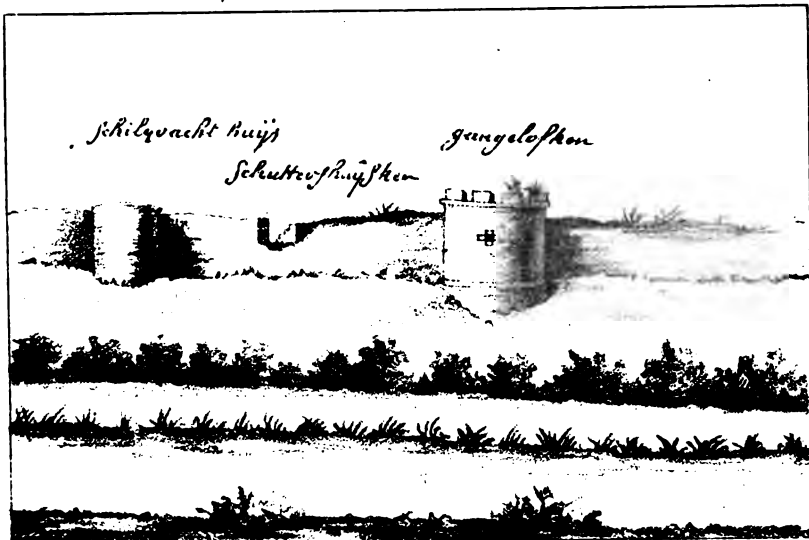 schilqvacht huijs
Schuttershuijsken
gangelofken